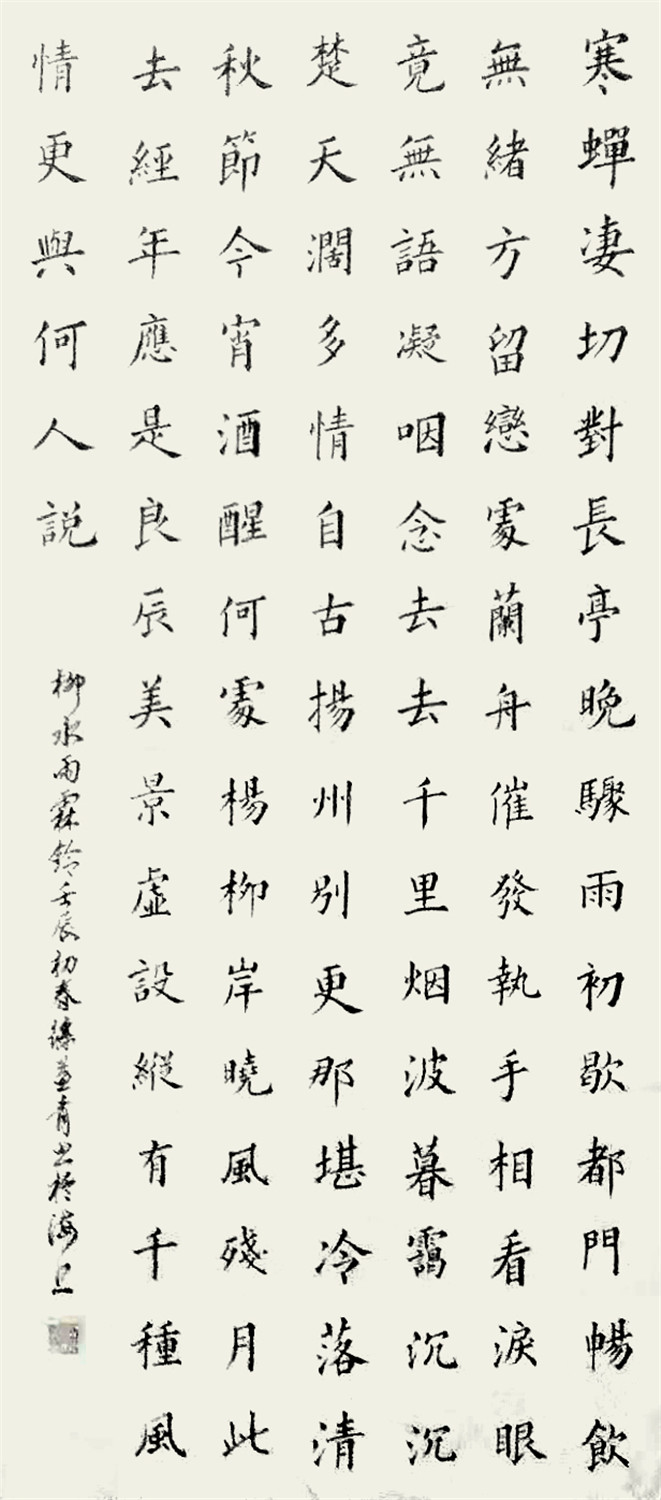 寒蟬凄切對長亭晚驟雨初歇都門暢飲
無緒方留戀處蘭舟催發執手相看淚眼
竟無語凝咽念去去千里烟波暮靄沉沉
楚天濶多情自古揚州別更那堪冷落清
秋節今宵酒醒何處楊柳岸曉風殘月此
去經年應是良辰美景虛設縱有千種風
情更與何人説
柳永雨霖鈴壬辰初春青书於海上